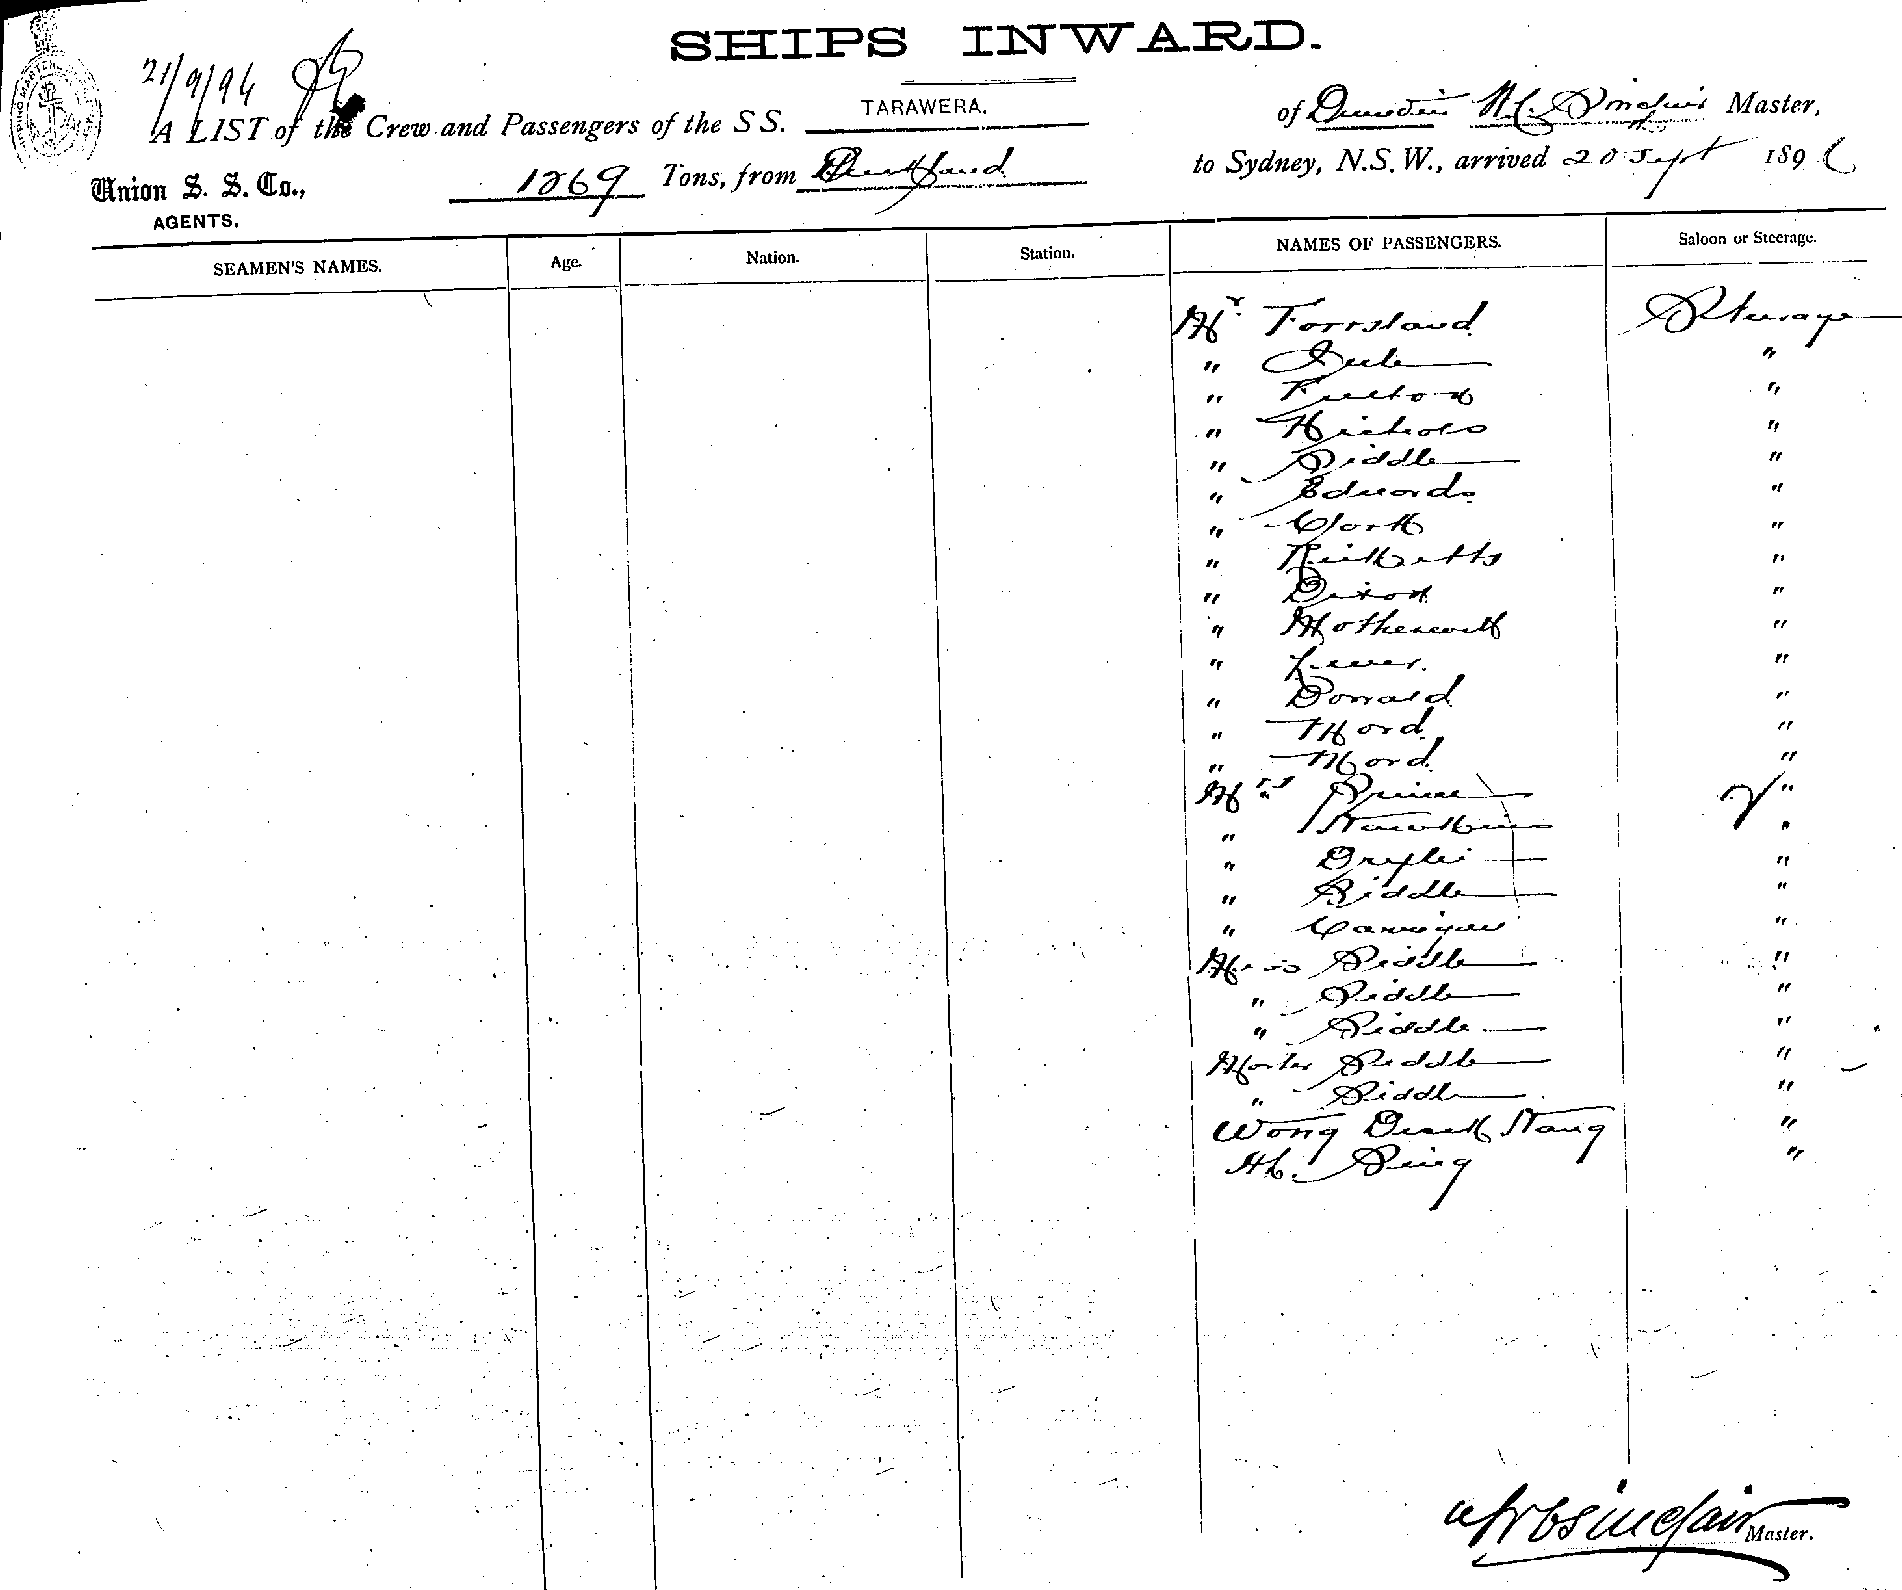 SHIPS INWARD.
21/9/96
A LIST of the Crew and Passengers of the SS. TARAWERA. of Dunedin W.C. Sinclair Master,
Union S. S. Co., 1269 Tons, from Auckland to Sydney, N.S.W., arrived 20 Sept 1896
AGENTS.
SEAMEN'S NAMES. Age. Nation. Station. NAMES OF PASSENGERS. Saloon or Steerage.
Mr Forrstand Steerage
" "
" Fulton "
" Nichols "
" Siddle "
" Edwards "
" Clark "
" Ricketts "
" Dixon "
" Motherwell "
" Lewer. "
" Donnald "
" Ward "
" Ward "
Mrs "
" "
" "
" Siddle "
" Carrigan "
Miss Siddle "
" Siddle "
" Siddle "
Master Siddle "
" Siddle "
Wong "
Ah Sing "
W C Sinclair Master.